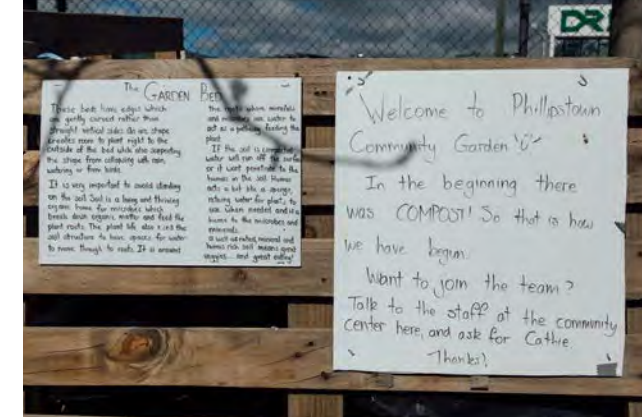 DR
The GARDEN BED
These beds have edges which
are gently curved rather than
straight vertical sides. An arc shape
creates room to plant right to the
outside of the bed while also supporting
the shape from collapsing with rain,
watering or from birds.
It is very important to avoid standing
on the soil. Soil is a living and thriving
organic home for microbes which
break down organic matter and feed the
plant roots. The plant life also the
soil structure to have spaces for water
to move through to roots. It is around
the roots where minerals
and microbes use water to
act as a pathway feeding the
plant.
If the soil is compacted
water will run off the surface
or it wont penetrate to the
humus in the soil. Humus
acts a bit like a sponge,
retaining water for plants to
use when needed and is a
home to the microbes and
minerals.
A well aerated, mineral and
humus rich soil means good
veggies... and great eating!
Welcome to Phillipstown
Community Garden
In the beginning there
was COMPOST! So that is how
we have begun.
Want to join the team?
Talk to the staff at the community
center here, and ask for Cathie.
Thanks!